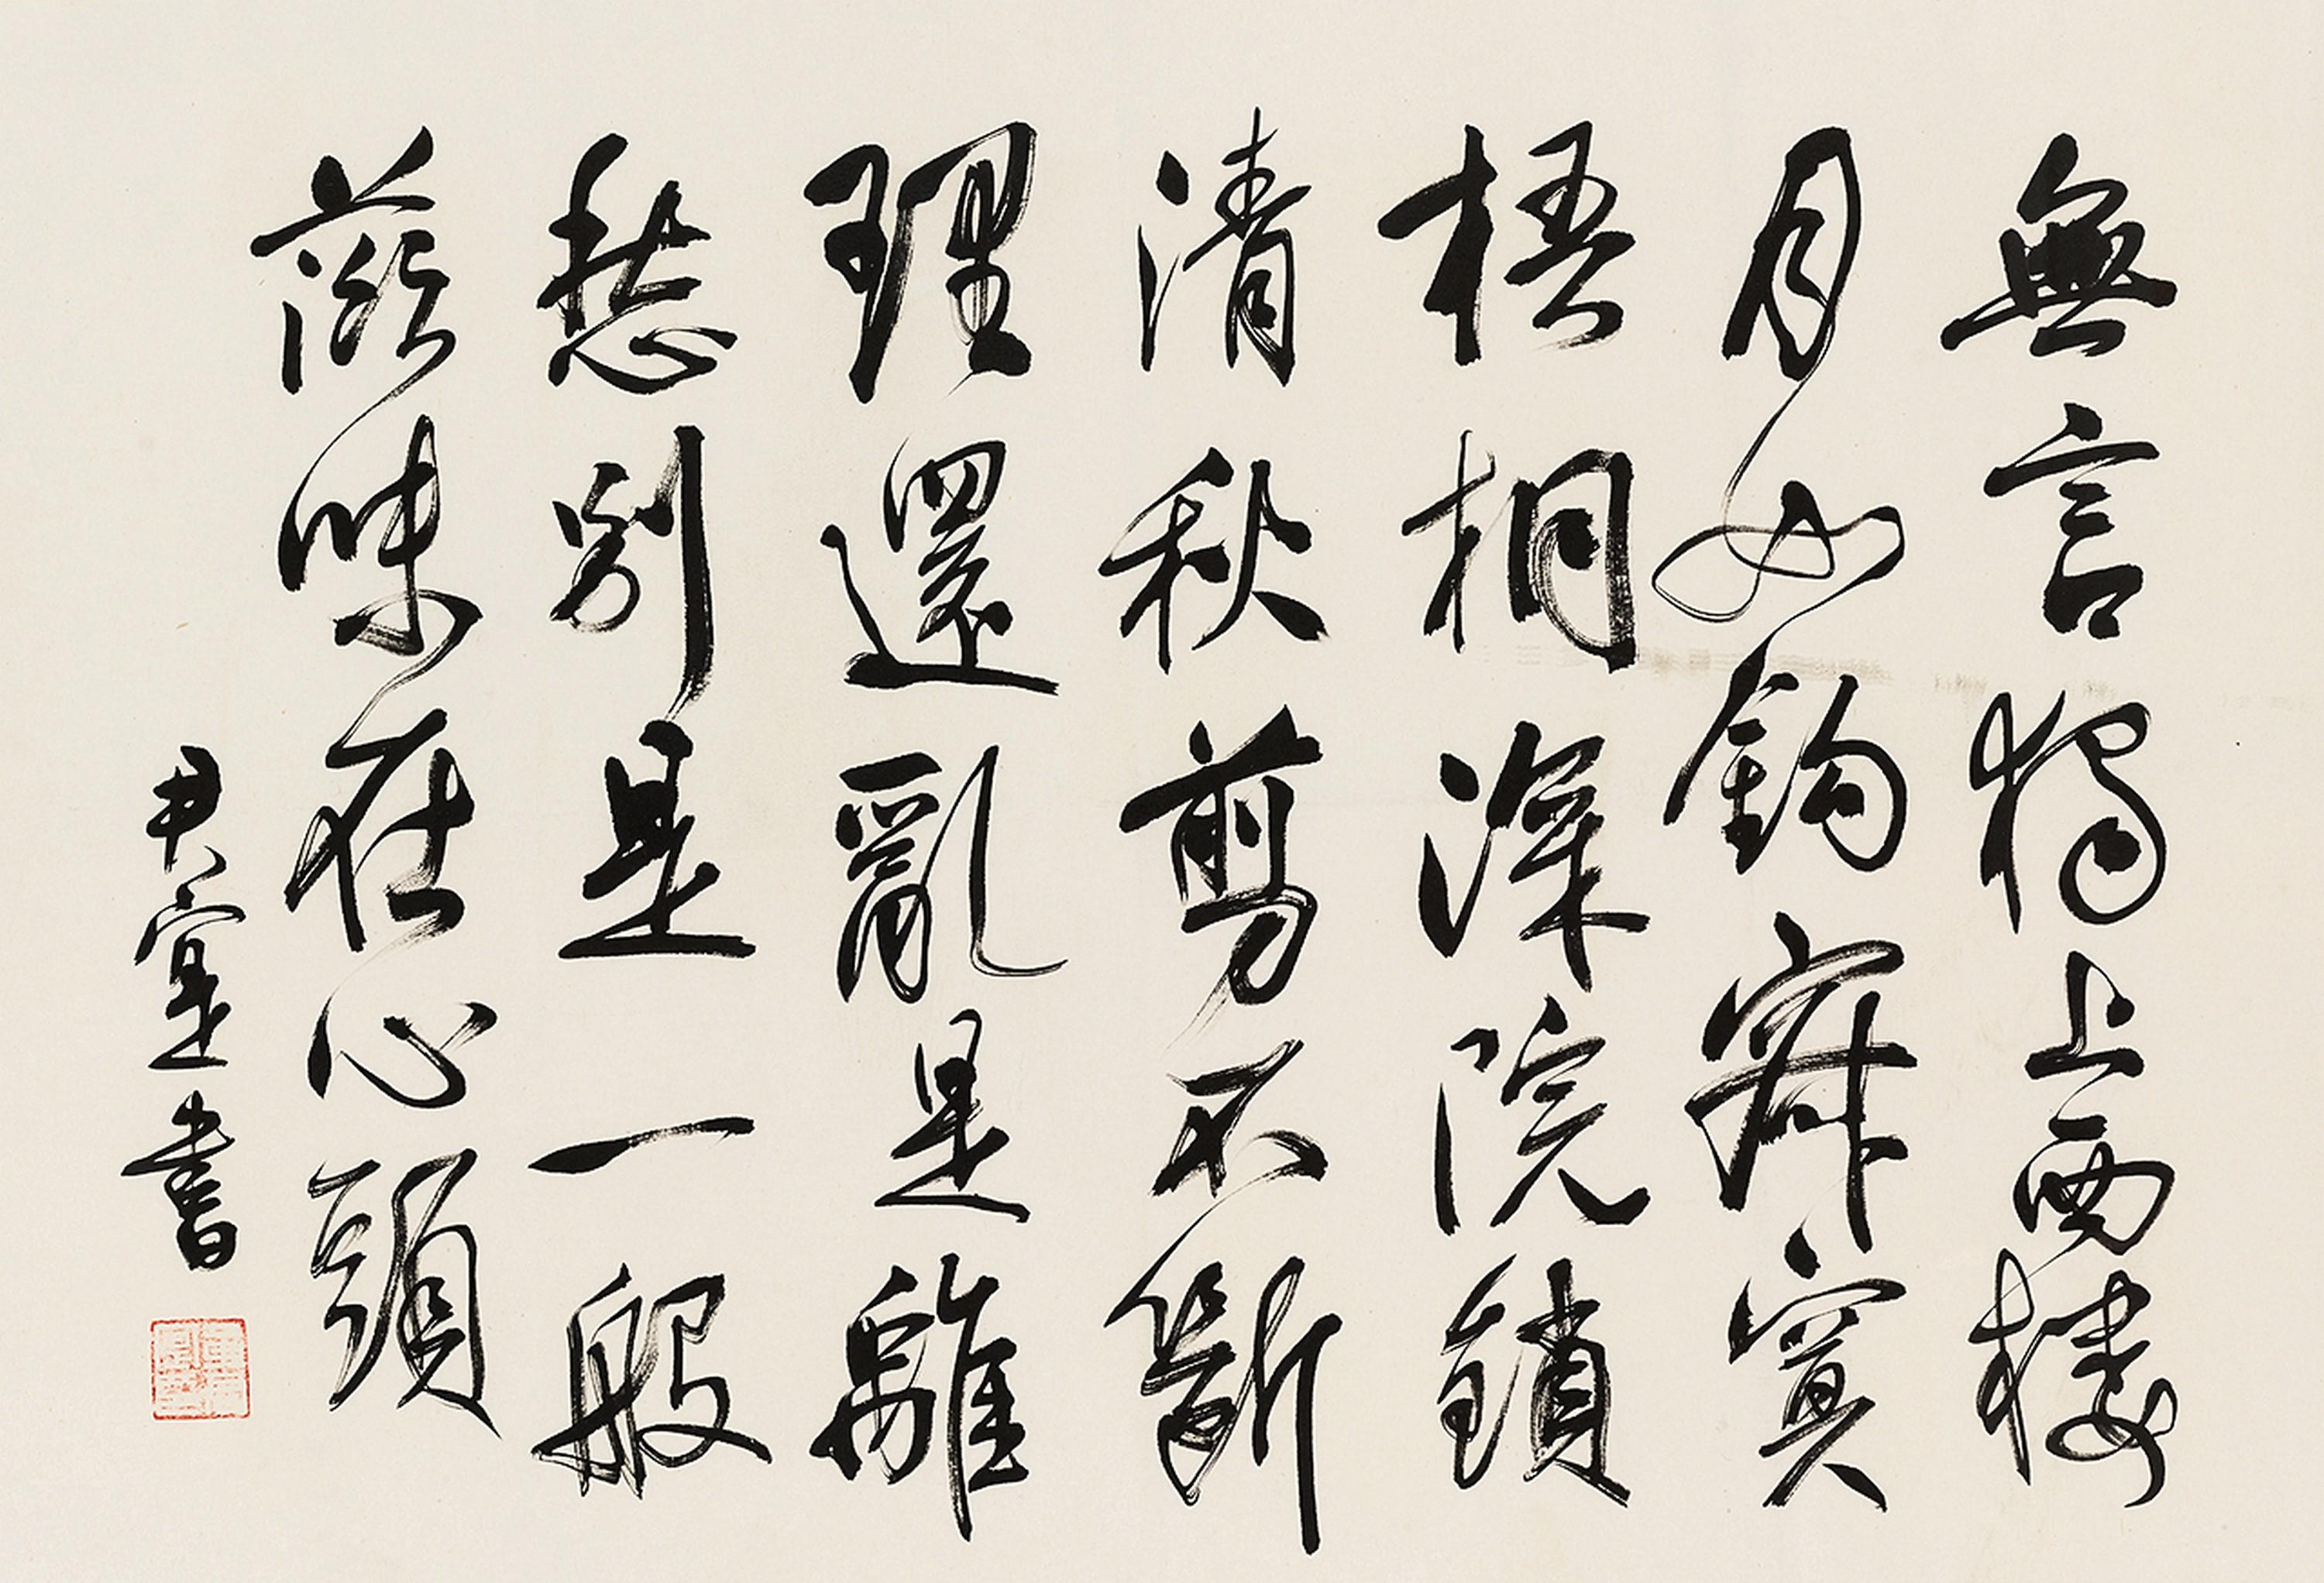 無言獨上西樓
月如鈎寂寞
梧桐深院鎖
清秋剪不斷
理還亂是離
愁別是一般
滋味在心頭
書